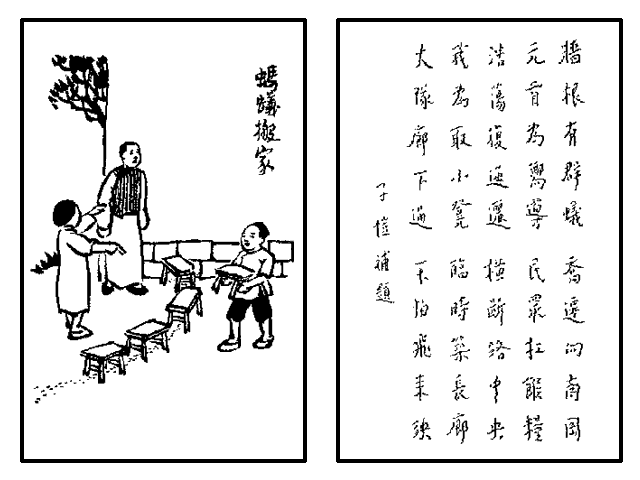 螞蟻搬家
牆根有群蟻 喬遷向南岡
元首為嚮導 民眾扛餱糧
浩蕩復迤邐 橫斷路中央
我為取小凳 臨時築長廊
大隊廊下過 不怕飛來殃
子愷補題